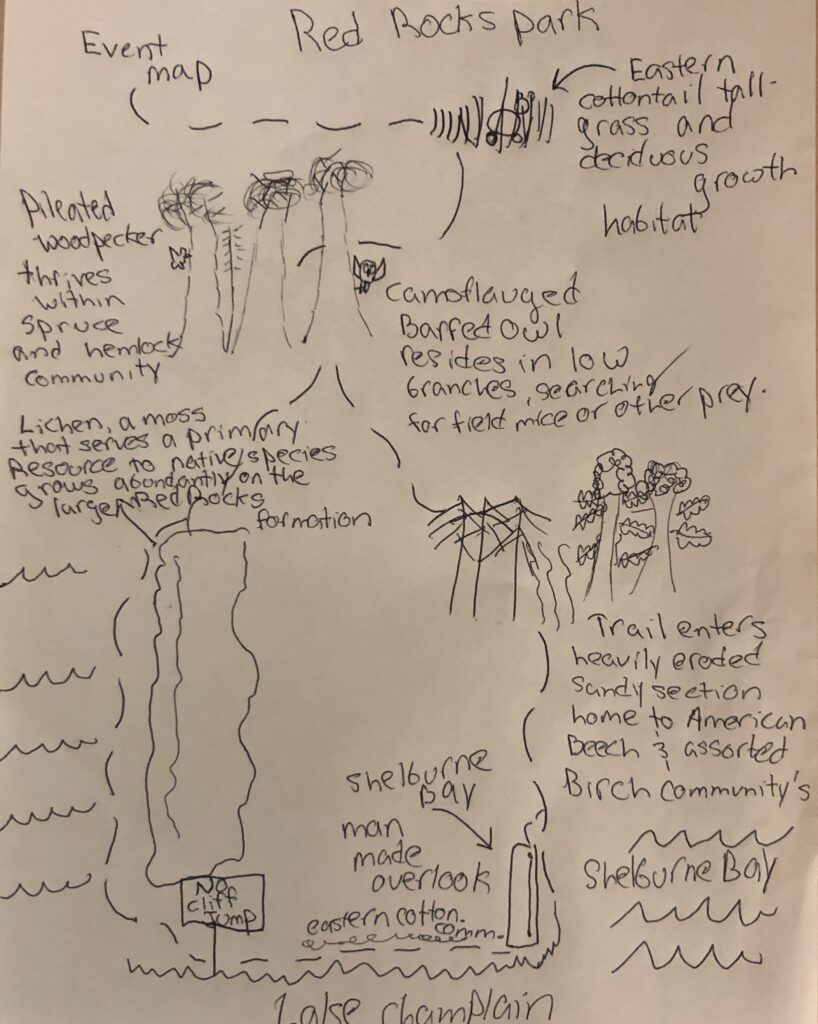 Red Rocks park
Event
map
Eastern
cottontail tall-
grass and
deciduous
growth
habitat
Pileated
woodpecker
thrives
within
spruce
and hemlock
community
Camoflauged
Barred Owl
resides in low
branches, searching
for field mice or other prey.
Lichen, a moss
that serves a primary
Resource to native species
grows abundantly on the
larger Red Rocks
formation
Trail enters
heavily eroded
sandy section
home to American
Beech & assorted
Birch community's
Shelburne
Bay
man
made
overlook
Shelburne Bay
No
cliff
Jump
eastern cotton.
comm.
Lake champlain